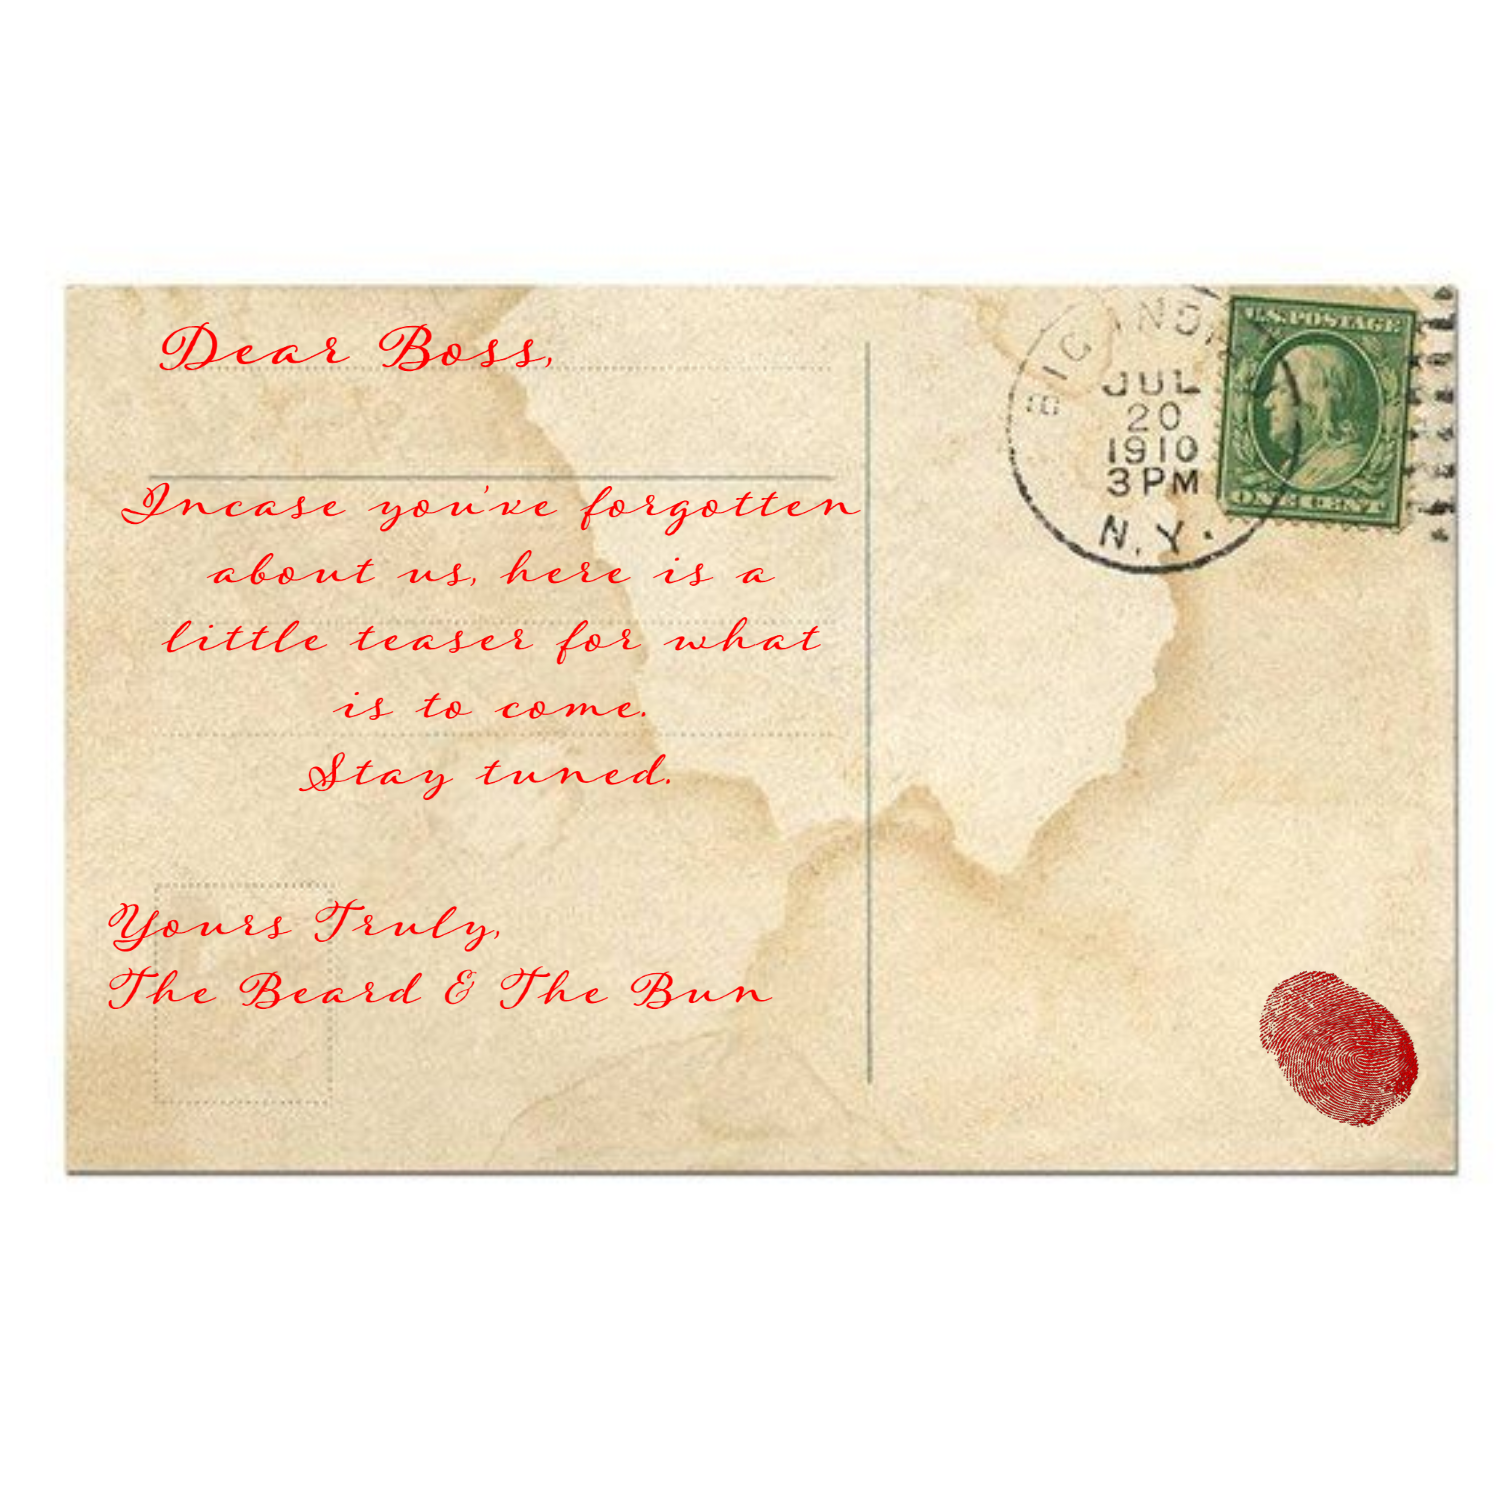 Dear Boss,
Incase you've forgotten
about us, here is a
little teaser for what
is to come.
Stay tuned.
Yours Truly,
The Beard & The Bun
JUL
20
1910
3PM
N.Y.
U.S.POSTAGE
ONE CENT